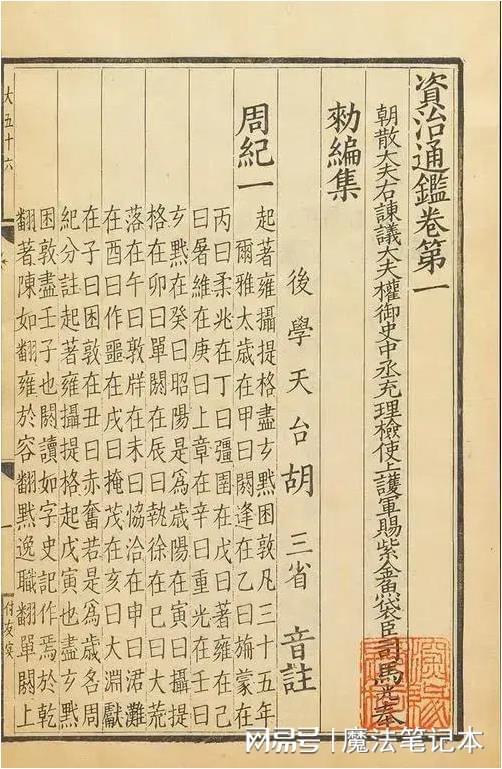 資治通鑑卷第一
朝散大夫右諫議大夫權御史中丞充理檢使上護軍賜紫金魚袋臣司馬光奉
勑編集
後學天台胡三省音註
周紀一
起著雍攝提格盡玄黓困敦凡三十五年
爾雅太歲在甲曰閼逢在乙曰旃蒙在
丙曰柔兆在丁曰彊圉在戊曰著雍在己
曰屠維在庚曰上章在辛曰重光在壬曰
玄黓在癸曰昭陽是爲歲陽在寅曰攝提
格在卯曰單閼在辰曰執徐在巳曰大荒
落在午曰敦牂在未曰協洽在申曰涒灘
在酉曰作噩在戌曰掩茂在亥曰大淵獻
在子曰困敦在丑曰赤奮若是爲歲名周
紀分註起著雍攝提格起戊寅也盡玄黓
困敦盡壬子也閼讀如字史記作焉於乾
翻著陳如翻雍於容翻黓逸職翻單閼上
大五十六
一
付友實
搜狐号|魔法笔记本